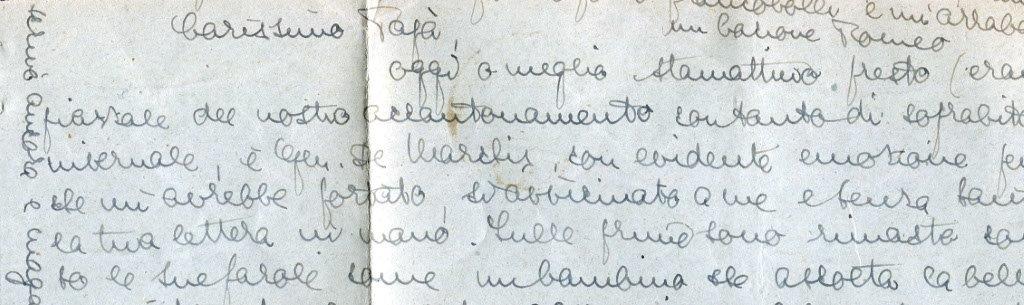 francobolli e mi arrab
Carissimo Papà,
un bacione Romeo
oggi o meglio stamattina presto (era
piazzale del nostro accantonamento con tanto di soprabito
invernale, è Gen. De Marchis, con evidente emozione
che mi avrebbe portato, s'avvicinato a me e senza
la tua lettera in mano. Sulle prime sono rimasto
so le sue parole come un bambino che ascolta la bel